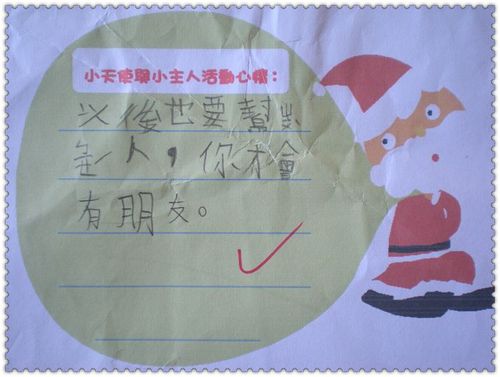 小天使與小主人活動心情：
以後也要幫
人，你才會
有朋友。